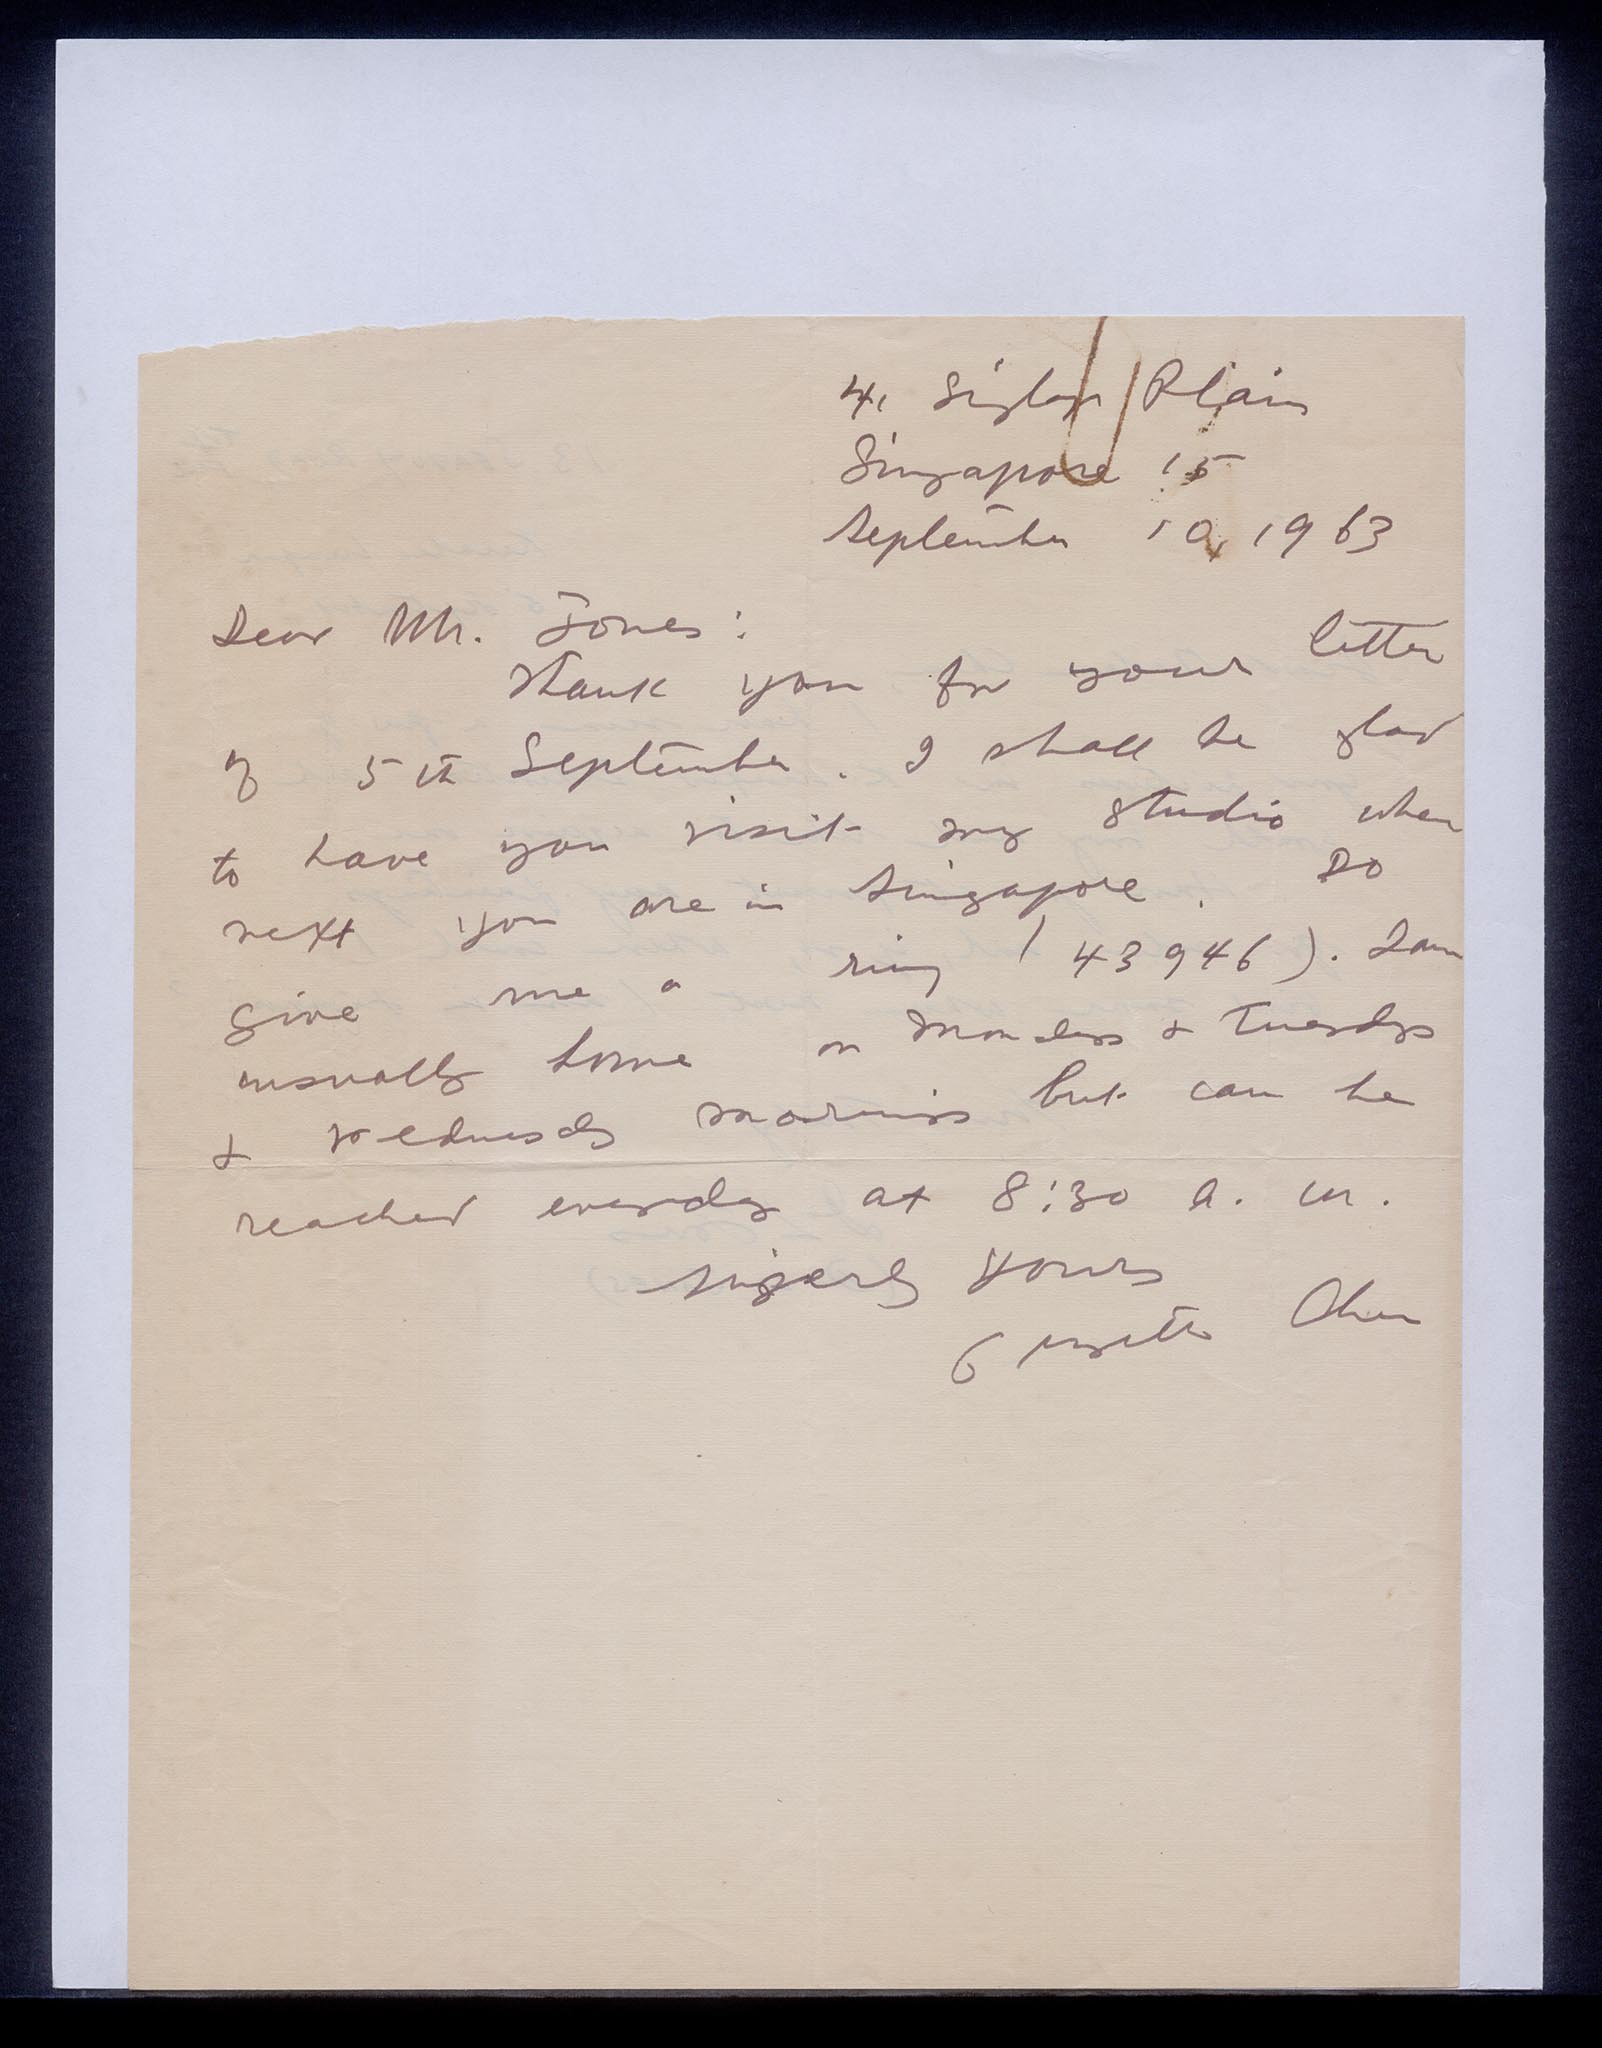 4, Siglap Plain
Singapore 15
September 10, 1963
Dear Mr. Jones:
Thank you for your letter
of 5th September. I shall be glad
to have you visit my studio when
next you are in Singapore. Do
give me a ring (43946). I am
usually home on Mondays & Tuesdays
& Wednesday mornings but can be
reached everyday at 8:30 a.m.
Sincerely yours
Georgette Chen